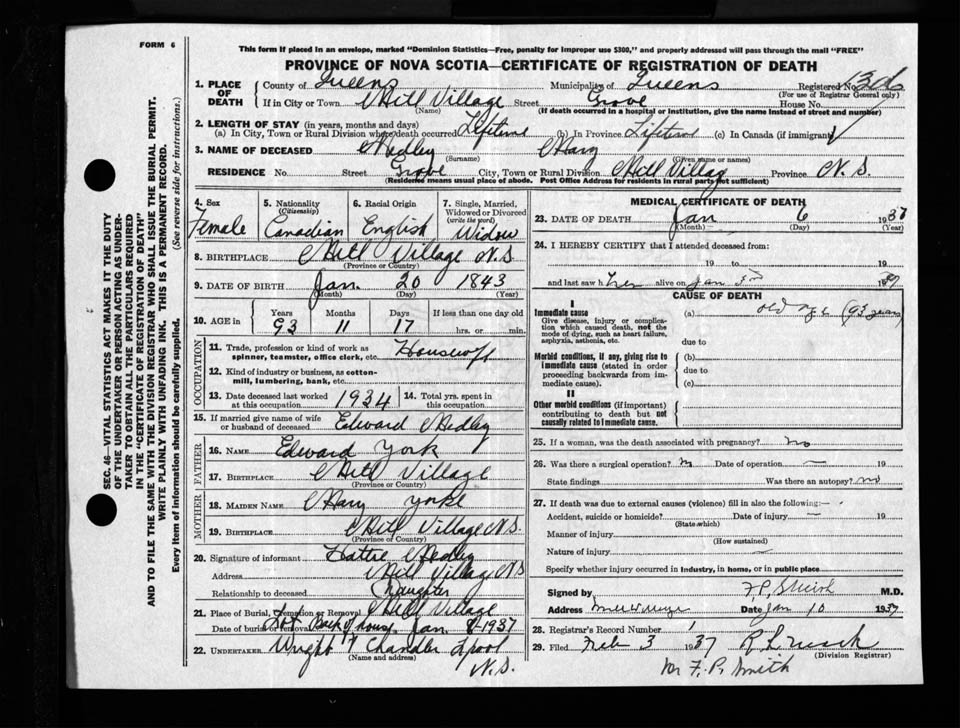 FORM 6
This form if placed in an envelope, marked "Dominion Statistics—Free, penalty for improper use $300," and properly addressed will pass through the mail "FREE"
PROVINCE OF NOVA SCOTIA—CERTIFICATE OF REGISTRATION OF DEATH
1. PLACE OF DEATH County of Queens Municipality of Queens Registered No. 
(For use of Registrar General only)
If in City or Town Mill Village Street Grove House No.
(Name) (If death occurred in a hospital or institution, give the name instead of street and number)
2. LENGTH OF STAY (in years, months and days)
(a) In City, Town or Rural Division where death occurred Lifetime (b) In Province Lifetime (c) In Canada (if immigrant)
3. NAME OF DECEASED Hedley Mary
(Surname) (Given name or names)
RESIDENCE No. Street Grove City, Town or Rural Division Mill Village Province N.S.
(Residence means usual place of abode. Post Office Address for residents in rural parts not sufficient)
4. Sex Female
5. Nationality (Citizenship) Canadian
6. Racial Origin English
7. Single, Married, Widowed or Divorced (write the word) Widow
8. BIRTHPLACE Mill Village N.S.
(Province or Country)
9. DATE OF BIRTH Jan. 20 1843
(Month) (Day) (Year)
10. AGE in Years Months Days If less than one day
93 11 17 hrs. or min.
OCCUPATION
11. Trade, profession or kind of work as spinner, teamster, office clerk, etc. Housewife
12. Kind of industry or business, as cotton-mill, lumbering, bank, etc.
13. Date deceased last worked at this occupation 1934 14. Total yrs. spent in this occupation
15. If married give name of wife or husband of deceased Edward Hedley
FATHER
16. NAME Edward York
17. BIRTHPLACE Mill Village
(Province or Country)
MOTHER
18. MAIDEN NAME Mary Yorke
19. BIRTHPLACE Mill Village N.S.
(Province or Country)
20. Signature of informant Hattie Hedley
Address Mill Village N.S
Relationship to deceased Daughter
21. Place of Burial, Cremation or Removal Mill Village
Lot Back of house
Date of burial or removal Jan 8-1937
22. UNDERTAKER Wright T Chandler Lpool
(Name and address) N.S.
MEDICAL CERTIFICATE OF DEATH
23. DATE OF DEATH Jan 6 1937
(Month) (Day) (Year)
24. I HEREBY CERTIFY that I attended deceased from:
19 to 19
and last saw her alive on Jan 3rd 1937
CAUSE OF DEATH
I
Immediate cause (a) old age (93 years)
Give disease, injury or complication which caused death, not the mode of dying, such as heart failure, asphyxia, asthenia, etc.
due to
Morbid conditions, if any, giving rise to immediate cause (stated in order proceeding backwards from immediate cause). (b)
due to
(c)
II
Other morbid conditions (if important) contributing to death but not causally related to immediate cause.
25. If a woman, was the death associated with pregnancy? no
26. Was there a surgical operation? n Date of operation — 19
State findings Was there an autopsy? no
27. If death was due to external causes (violence) fill in also the following:—
Accident, suicide or homicide? Date of injury — 19
(State which)
Manner of injury
(How sustained)
Nature of injury —
Specify whether injury occurred in industry, in home, or in public place
Signed by F.P. Smith M.D.
Address Date Jan 10 1937
28. Registrar's Record Number 1
29. Filed Feb 3 1937
(Division Registrar)
F. P. Smith
SEC. 46—VITAL STATISTICS ACT MAKES IT THE DUTY
OF THE UNDERTAKER OR PERSON ACTING AS UNDER-
TAKER TO OBTAIN ALL THE PARTICULARS REQUIRED
IN THE "CERTIFICATE OF REGISTRATION OF DEATH"
AND TO FILE THE SAME WITH THE DIVISION REGISTRAR WHO SHALL ISSUE THE BURIAL PERMIT.
WRITE PLAINLY WITH UNFADING INK. THIS IS A PERMANENT RECORD.
Every item of information should be carefully supplied. (See reverse side for instructions.)